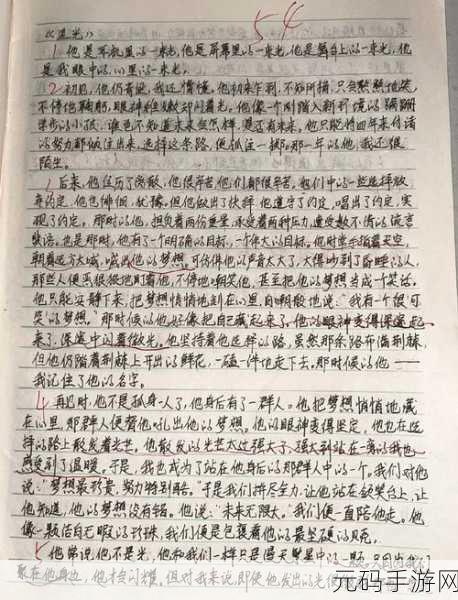 54
《追光》
1 他是手机里的一束光,他是屏幕里的一束光,他是舞台上的一束光,他
是我眼中的、心里的一束光。
2 初见,他仍青涩,我还懵懂。他初来乍到,不知所措,只会默默地笑,
不停地鞠躬,眼神
他像一个刚踏入新环境的蹒跚
学步的小孩,谁也不知道未来会怎样,是否有未来。他只能将四年来付诸
的努力都
选择这条路,便抓住一
那一年的他,我还很
陌生。
后来,他经历了
他很辛苦,他们都很辛苦。他们中的一些选择放
弃约定,他也徘徊、犹豫,但他做出了抉择,他遵守了约定,唱出了约定,实
现了约定。那时的他,担负着两份重量,承受着两种压力,遭受数不清的流言
蜚语。也是那时,他有了一个明确的目标,一个伟大的目标。他时常手指着天空,
朝着远方大喊,喊出他的梦想。可仿佛他的声音太大了,大得吵到了昏睡的人,
那些人便恶狠狠地盯着他,不停地嘲笑他,甚至把他的梦想当成一个笑话。
他只能安静下来,把梦想悄悄地刻在心里,自嘲般地说:“我有一个很‘可
笑’的梦想。”那时候的他好像把自己藏起来了。他的眼神变得深邃起
来了,深邃中闪着微光。他坚持着他选择的路,虽然那条路布满荆棘,
但他仍踏着荆棘上开出的鲜花,一磕一
地走下去。那时候的他——
我记住了他的名字。
4 再见时,他不是孤身一人了,他身后有了一群人。他把梦想悄悄地藏
在心里,那群人便替他
出他的梦想。他的眼神变得坚定。他也在选
择的路上散发着光芒。他散发的光芒太过强大了,强大到站在一旁的我也
感受到了温暖。于是,我也成为了站在他身后的那群人中的一个。我们对他
说:“梦想最珍贵,努力特别酷。”于是我们拼尽全力,让他站在领奖台上,让
他知道,他的梦想没有错。他说:“未来无限大。”我们便一直陪他走。他
像一颗洁白无暇的珍珠,我们便是包裹着他的最坚硬的贝壳。
他常说,他不是光,他和我们一样只是漫天星辰中的一颗,只因
聚在他身边,他才会闪耀。但对我来说,即使他发出的光
元码手游网